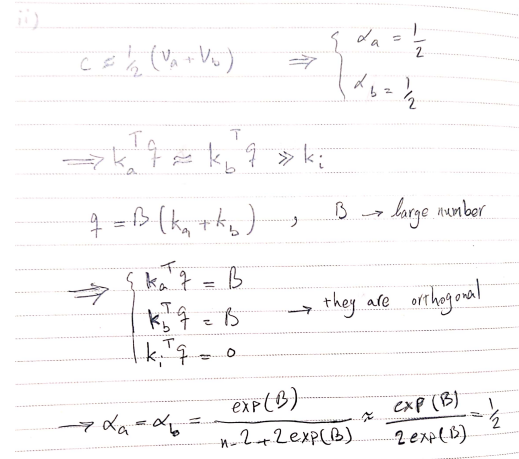 ii)
c ≈ 1/2 (Va + Vb) ⇒ { αa = 1/2
αb = 1/2
⇒ kaᵀq ≈ kbᵀq ≫ ki
q = B (ka + kb) , B → large number
⇒ { kaᵀq = B
kbᵀq = B → they are orthogonal
kiᵀq = 0
→ αa = αb = exp(B) / (n-2+2exp(B)) ≈ exp(B) / 2exp(B) = 1/2